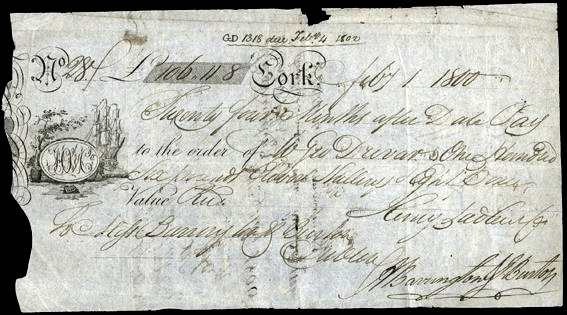 GD 1318 due Feby 4 1802
No 28 £ 106.11.8 Cork Feby 1 1800
Twenty four Months after Date Pay
to the order of Mr Geo Drevar One Hundred
Six Pounds Eleven Shillings & Eight Pence
Value
To Messrs Barrington & Burton
Dublin
Henry
Barrington & Burton